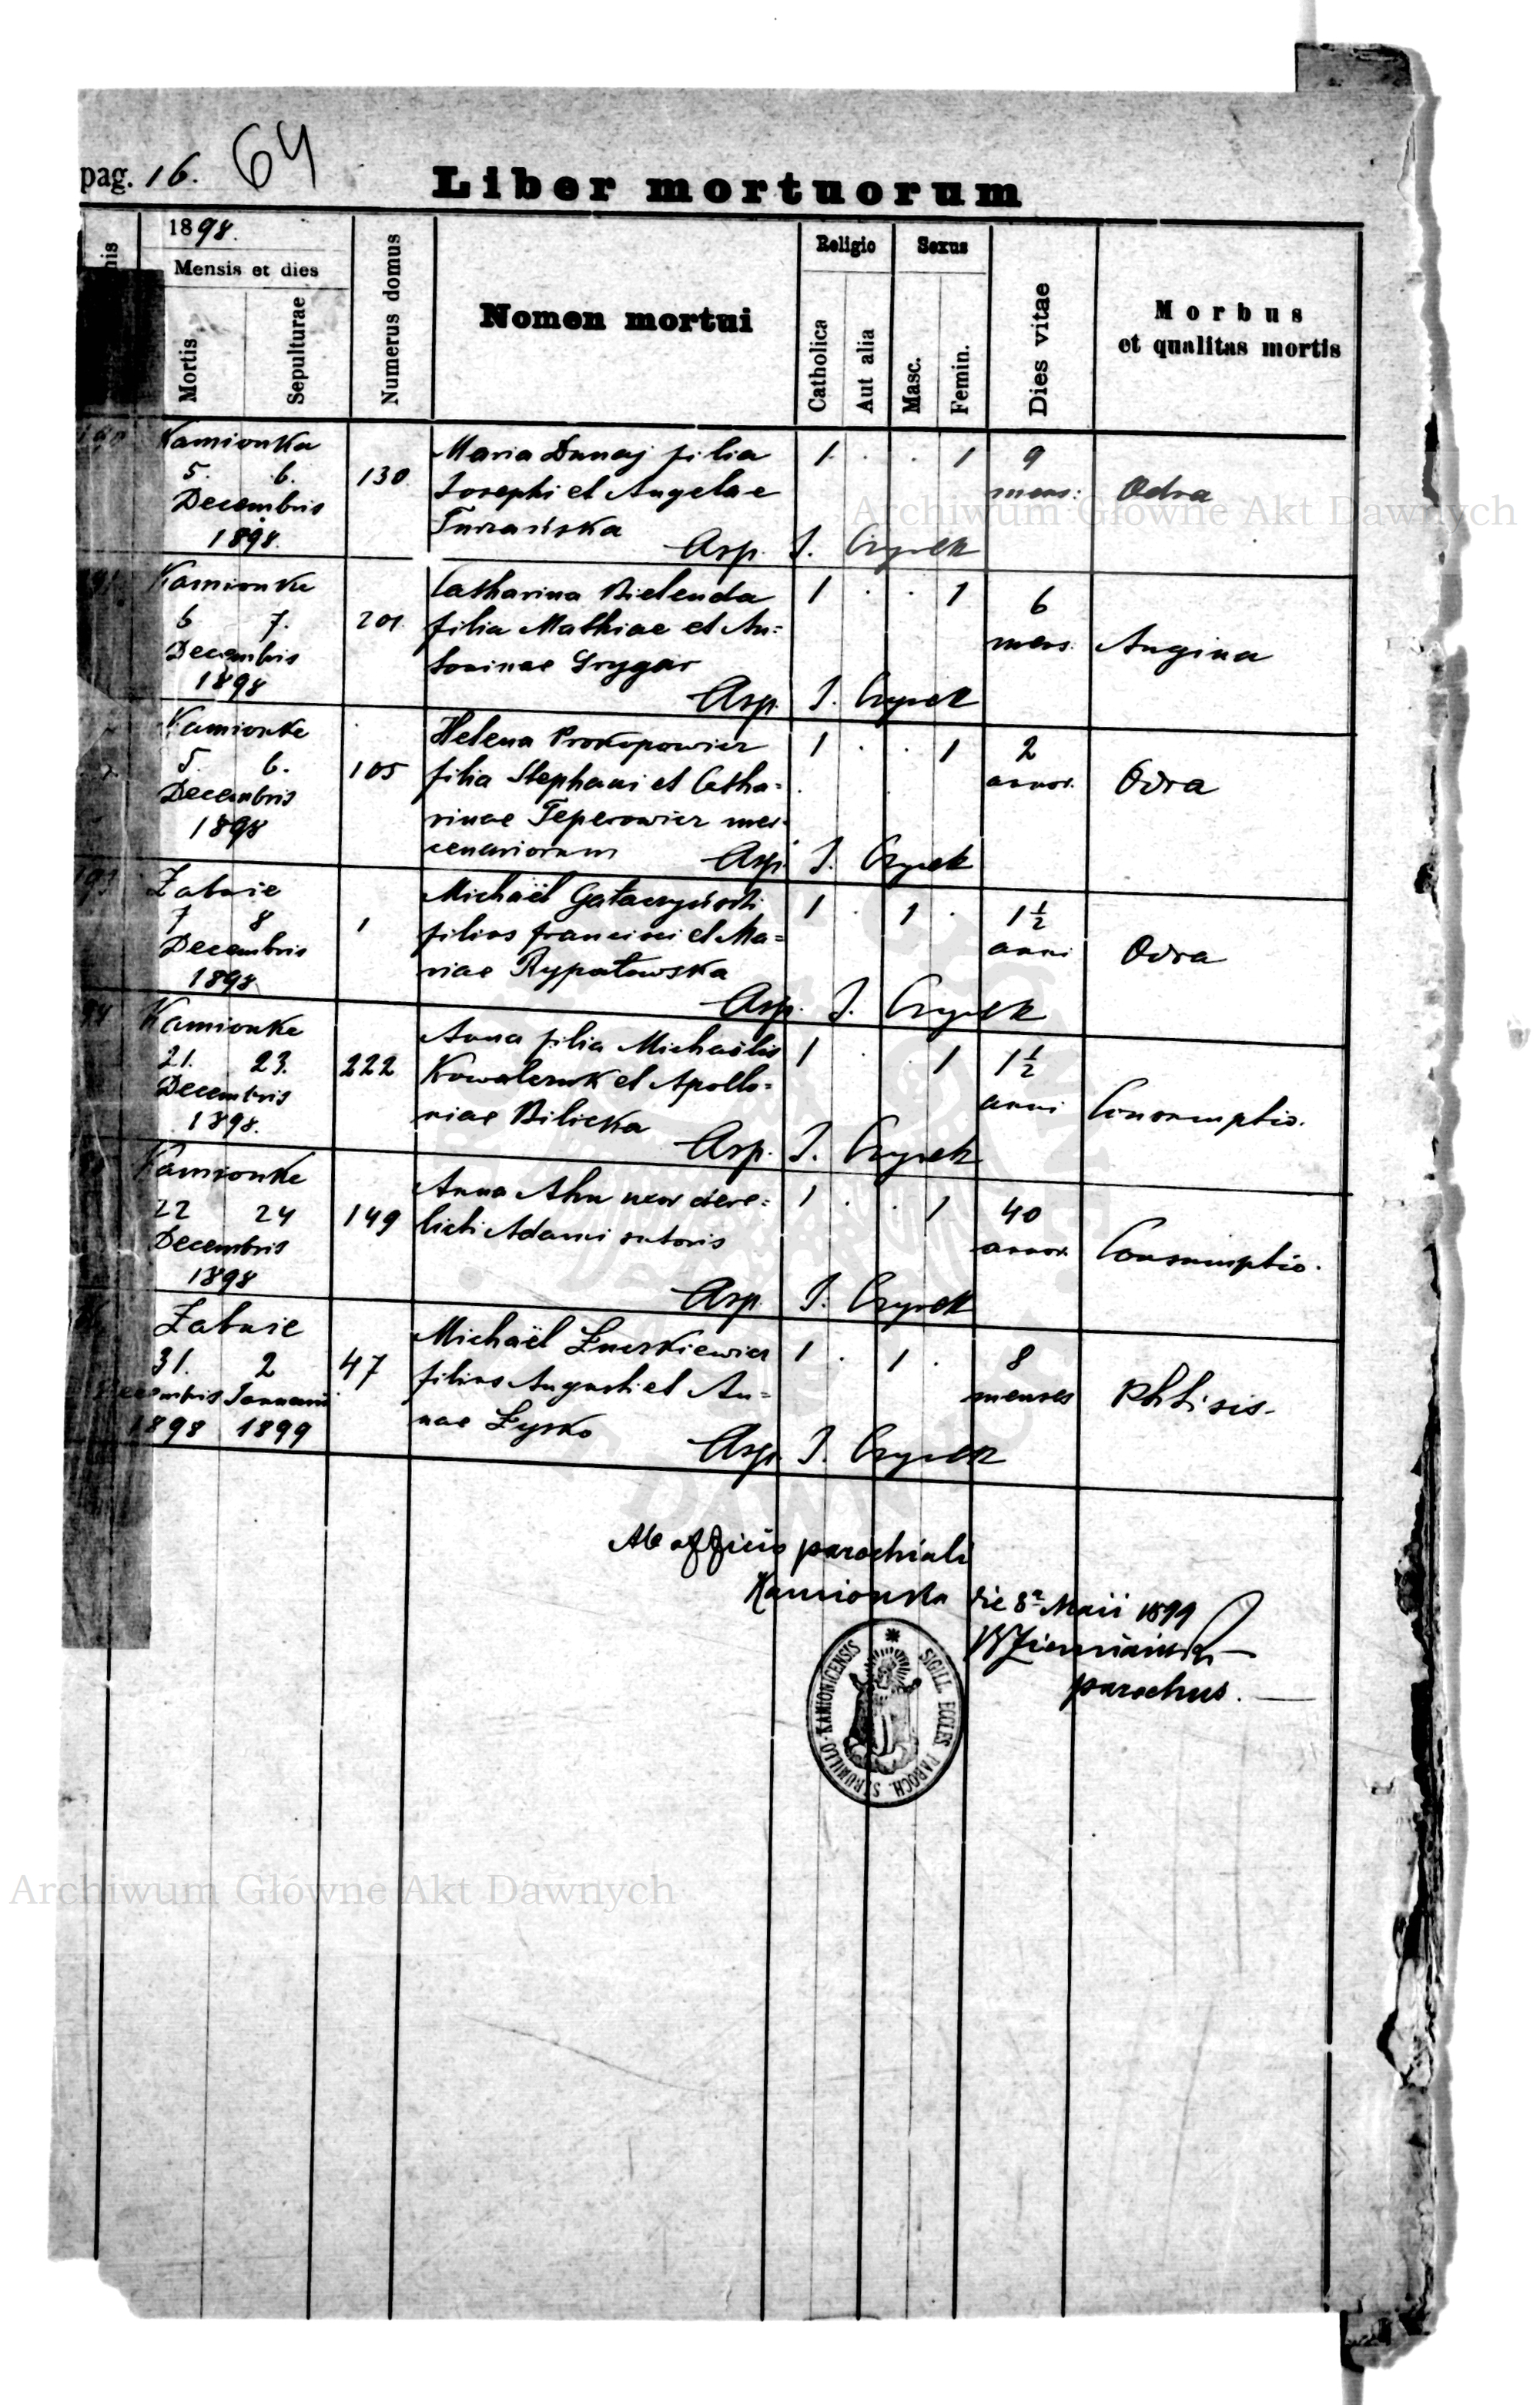 pag. 16. 64
Liber mortuorum
1898.
Mensis et dies
Mortis
Sepulturae
Numerus domus
Nomen mortui
Religio
Catholica
Aut alia
Sexus
Masc.
Femin.
Dies vitae
Morbus
et qualitas mortis
Kamionka
5. 6.
Decembris
1898.
130
Maria Dunaj filia
Josephi et Angelae
Turzańska
1 . . 1
9
mens:
Odra
Asp. J. Czyrek
Kamionka
6 7.
Decembris
1898
201
Catharina Bielenda
filia Mathiae et An=
toninae Grygar
1 . . 1
6
mens.
Angina
Asp. J. Czyrek
Kamionka
5. 6.
Decembris
1898
105
Helena Prokopowicz
filia Stephani et Catha=
rinae Teperowicz mer-
cenariorum
1 . . 1
2
annor.
Odra
Asp. J. Czyrek
Łabnie
7 8
Decembris
1898
1
Michaël Gałaczyński
filius Francisci et Ma=
riae Rypałowska
1 . 1 .
1 1/2
anni
Odra
Asp. J. Czyrek
Kamionka
21. 23.
Decembris
1898.
222
Anna filia Michaëlis
Kowalczuk et Apollo=
niae Bilicka
1 . . 1
1 1/2
anni
Consumptio.
Asp. J. Czyrek
Kamionka
22 24
Decembris
1898
149
Anna Ahn uxor dere=
licti Adami sutoris
1 . . 1
40
annor.
Consumptio.
Asp. J. Czyrek
Łabnie
31. 2
Decembris Januarii
1898 1899
47
Michaël
filius Augusti et An=
nae Łysko
1 . 1 .
8
menses
Phtisis.
Asp. J. Czyrek
Ab officio parochiali
Kamionka die 8ª Maii 1899
parochus.
SIGILL. ECCLES PAROCH. STRUMILLO-KAMIONICENSIS
Archiwum Główne Akt Dawnych
Archiwum Główne Akt Dawnych